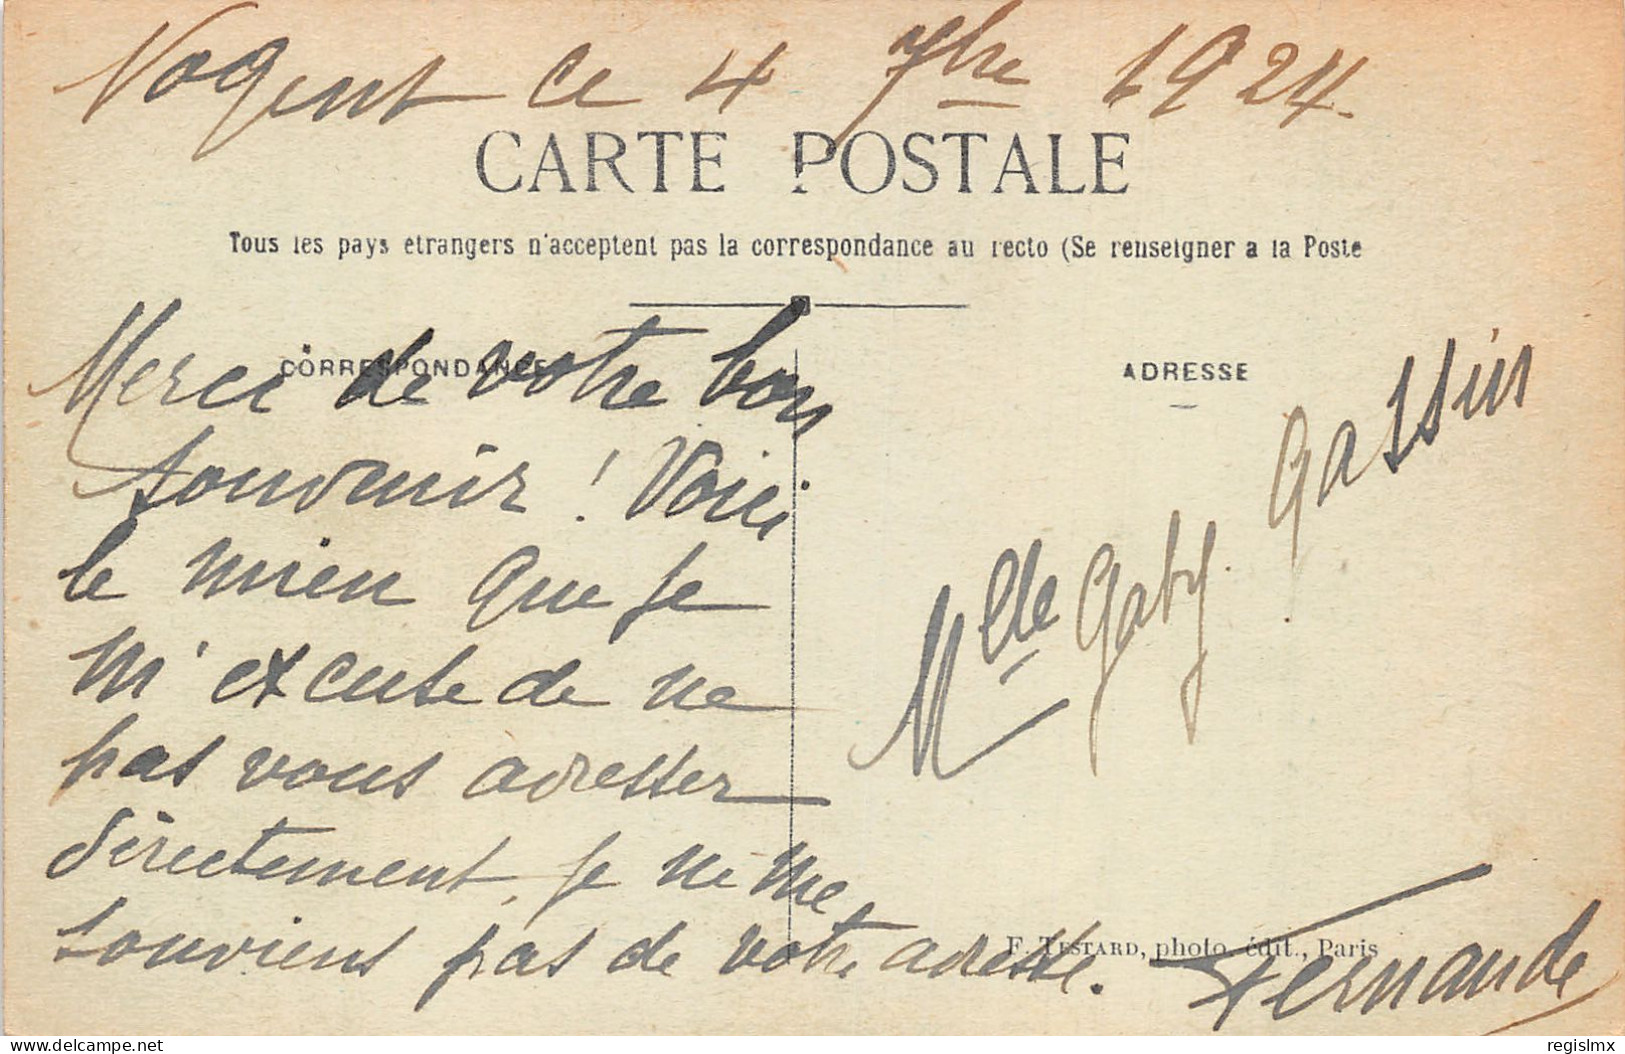 Nogent ce 4 7bre 1924
CARTE POSTALE
Tous les pays etrangers n'acceptent pas la correspondance au recto (Se renseigner a la Poste
CORRESPONDANCE
ADRESSE
Merci de votre bon
souvenir ! Voici
le mien que je
m'excuse de ne
pas vous adresser
directement, je ne me
souviens pas de votre adresse.
Mlle Gaby Gassin
F. TESTARD, photo. édit., Paris
Fernande
www.delcampe.net
regislmx